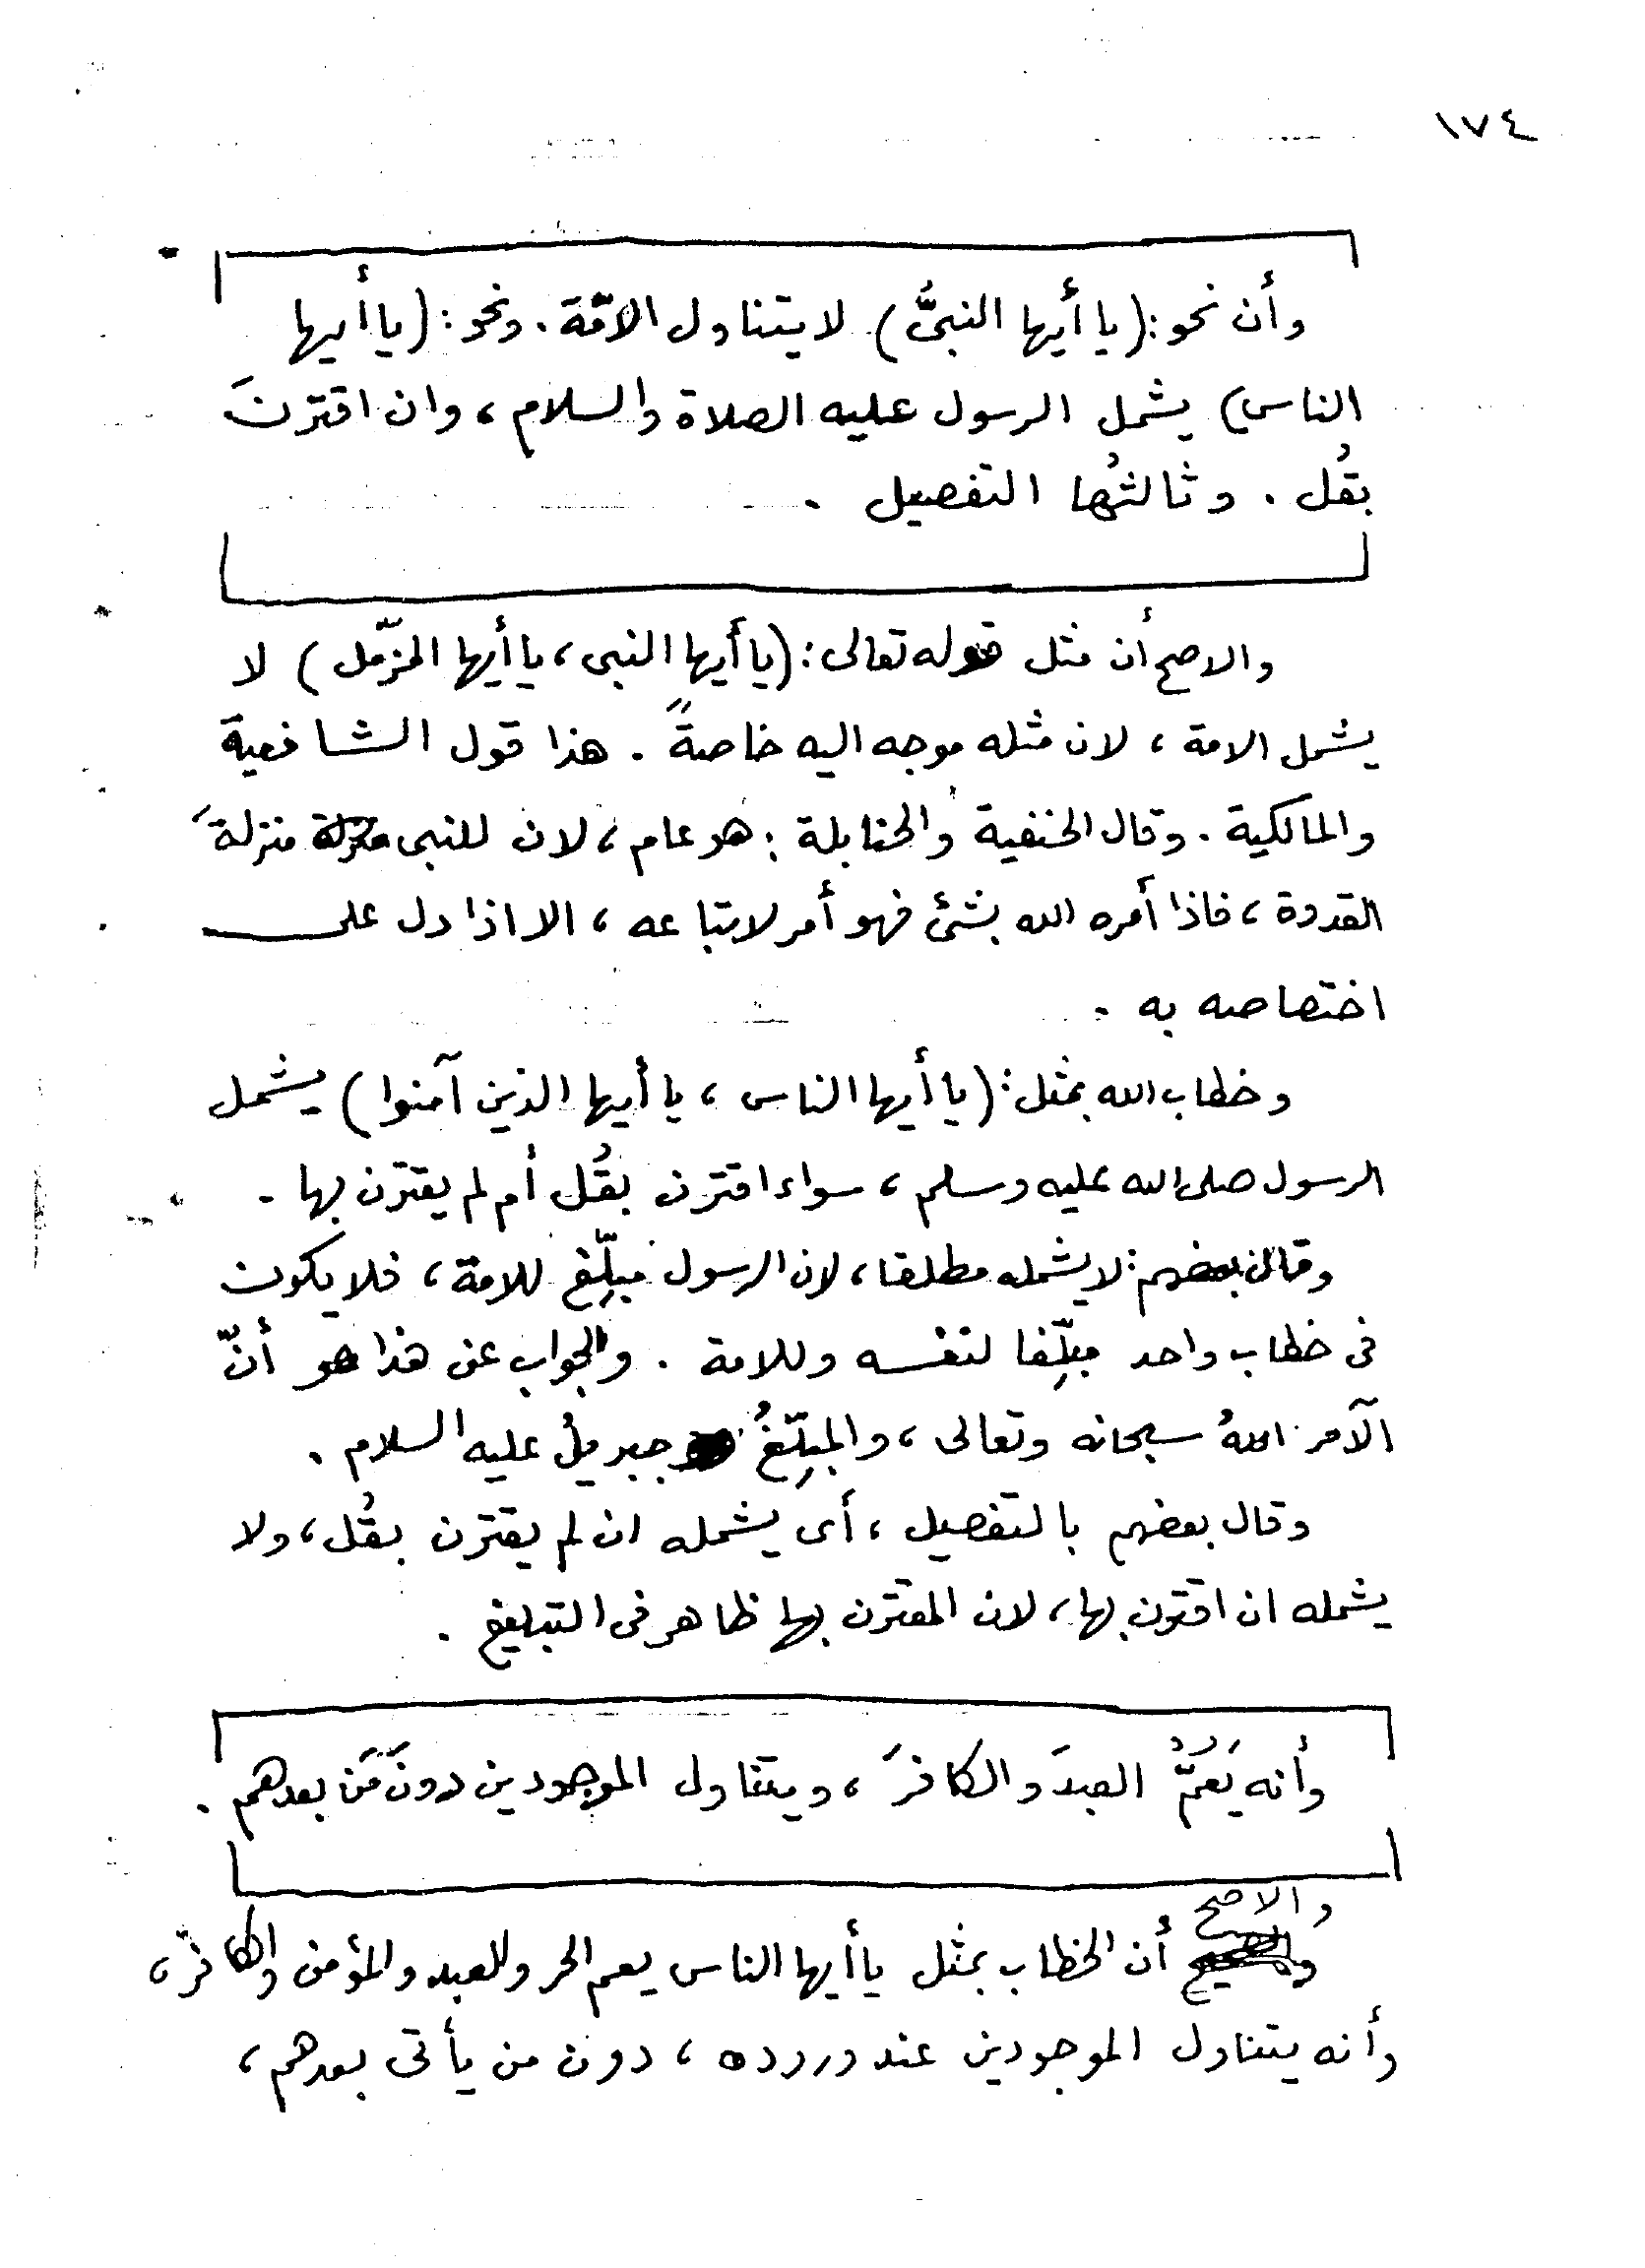 ١٧٤
وأن نحو: (يا أيها النبىُّ) لا يتناول الامّة. ونحو: (يا أيها
الناس) يشمل الرسول عليه الصلاة والسلام، وان اقترنَ
بقُل. وثالثُها التفصيل.
والاصح أن مثل قوله تعالى: (يا أيها النبى، يا أيها المزّمل) لا
يشمل الامة، لان مثله موجه اليه خاصةً. هذا قول الشافعية
والمالكية. وقال الحنفية والحنابلة: هو عام، لان للنبى منزلةَ
القدوة، فاذا أمره الله بشئ فهو أمر لاتباعه، الا اذا دل على
اختصاصه به.
وخطاب الله بمثل: (يا أيها الناس، يا أيها الذين آمنوا) يشمل
الرسول صلى الله عليه وسلم، سواء اقترن بقُل أم لم يقترن بها.
وقال بعضهم: لا يشمله مطلقا، لان الرسول مبلّغ للامة، فلا يكون
فى خطاب واحد مبلّغا لنفسه وللامة. والجواب عن هذا هو أنّ
الآمر اللهُ سبحانه وتعالى، والمبلّغُ جبريلُ عليه السلام.
وقال بعضهم بالتفصيل، أى يشمله ان لم يقترن بقُل، ولا
يشمله ان اقترن بها، لان المقترن بها ظاهر فى التبليغ.
وأنه يَعُمُّ العبدَ والكافرَ، ويتناول الموجودين دونَ مَن بعدهم.
والاصح
أن الخطاب بمثل يا أيها الناس يعم الحر والعبد والمؤمن والكافرَ،
وأنه يتناول الموجودين عند وروده، دون من يأتى بعدهم،